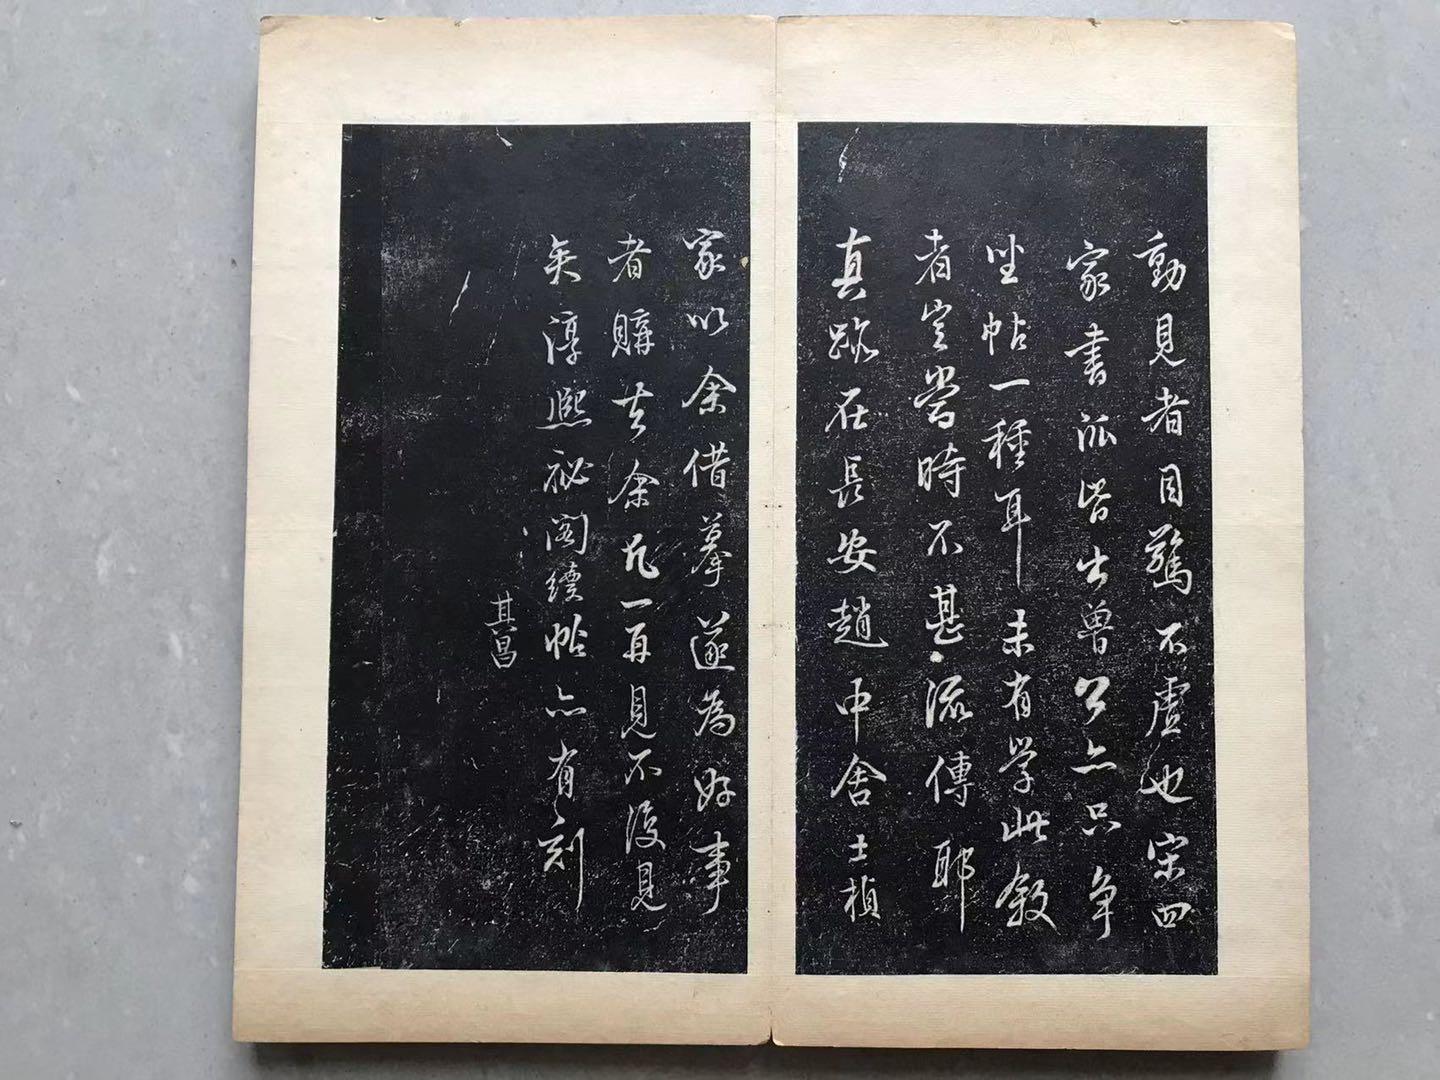 動見者目驚不虛也宋四
家書派皆出魯公亦只争
坐帖一種耳未有學此敘
者豈當時不甚流傳耶
真跡在長安趙中舍士楨
家以余借摹遂為好事
者購去余凡一再見不復見
矣淳熙祕閣續帖亦有刻
其昌